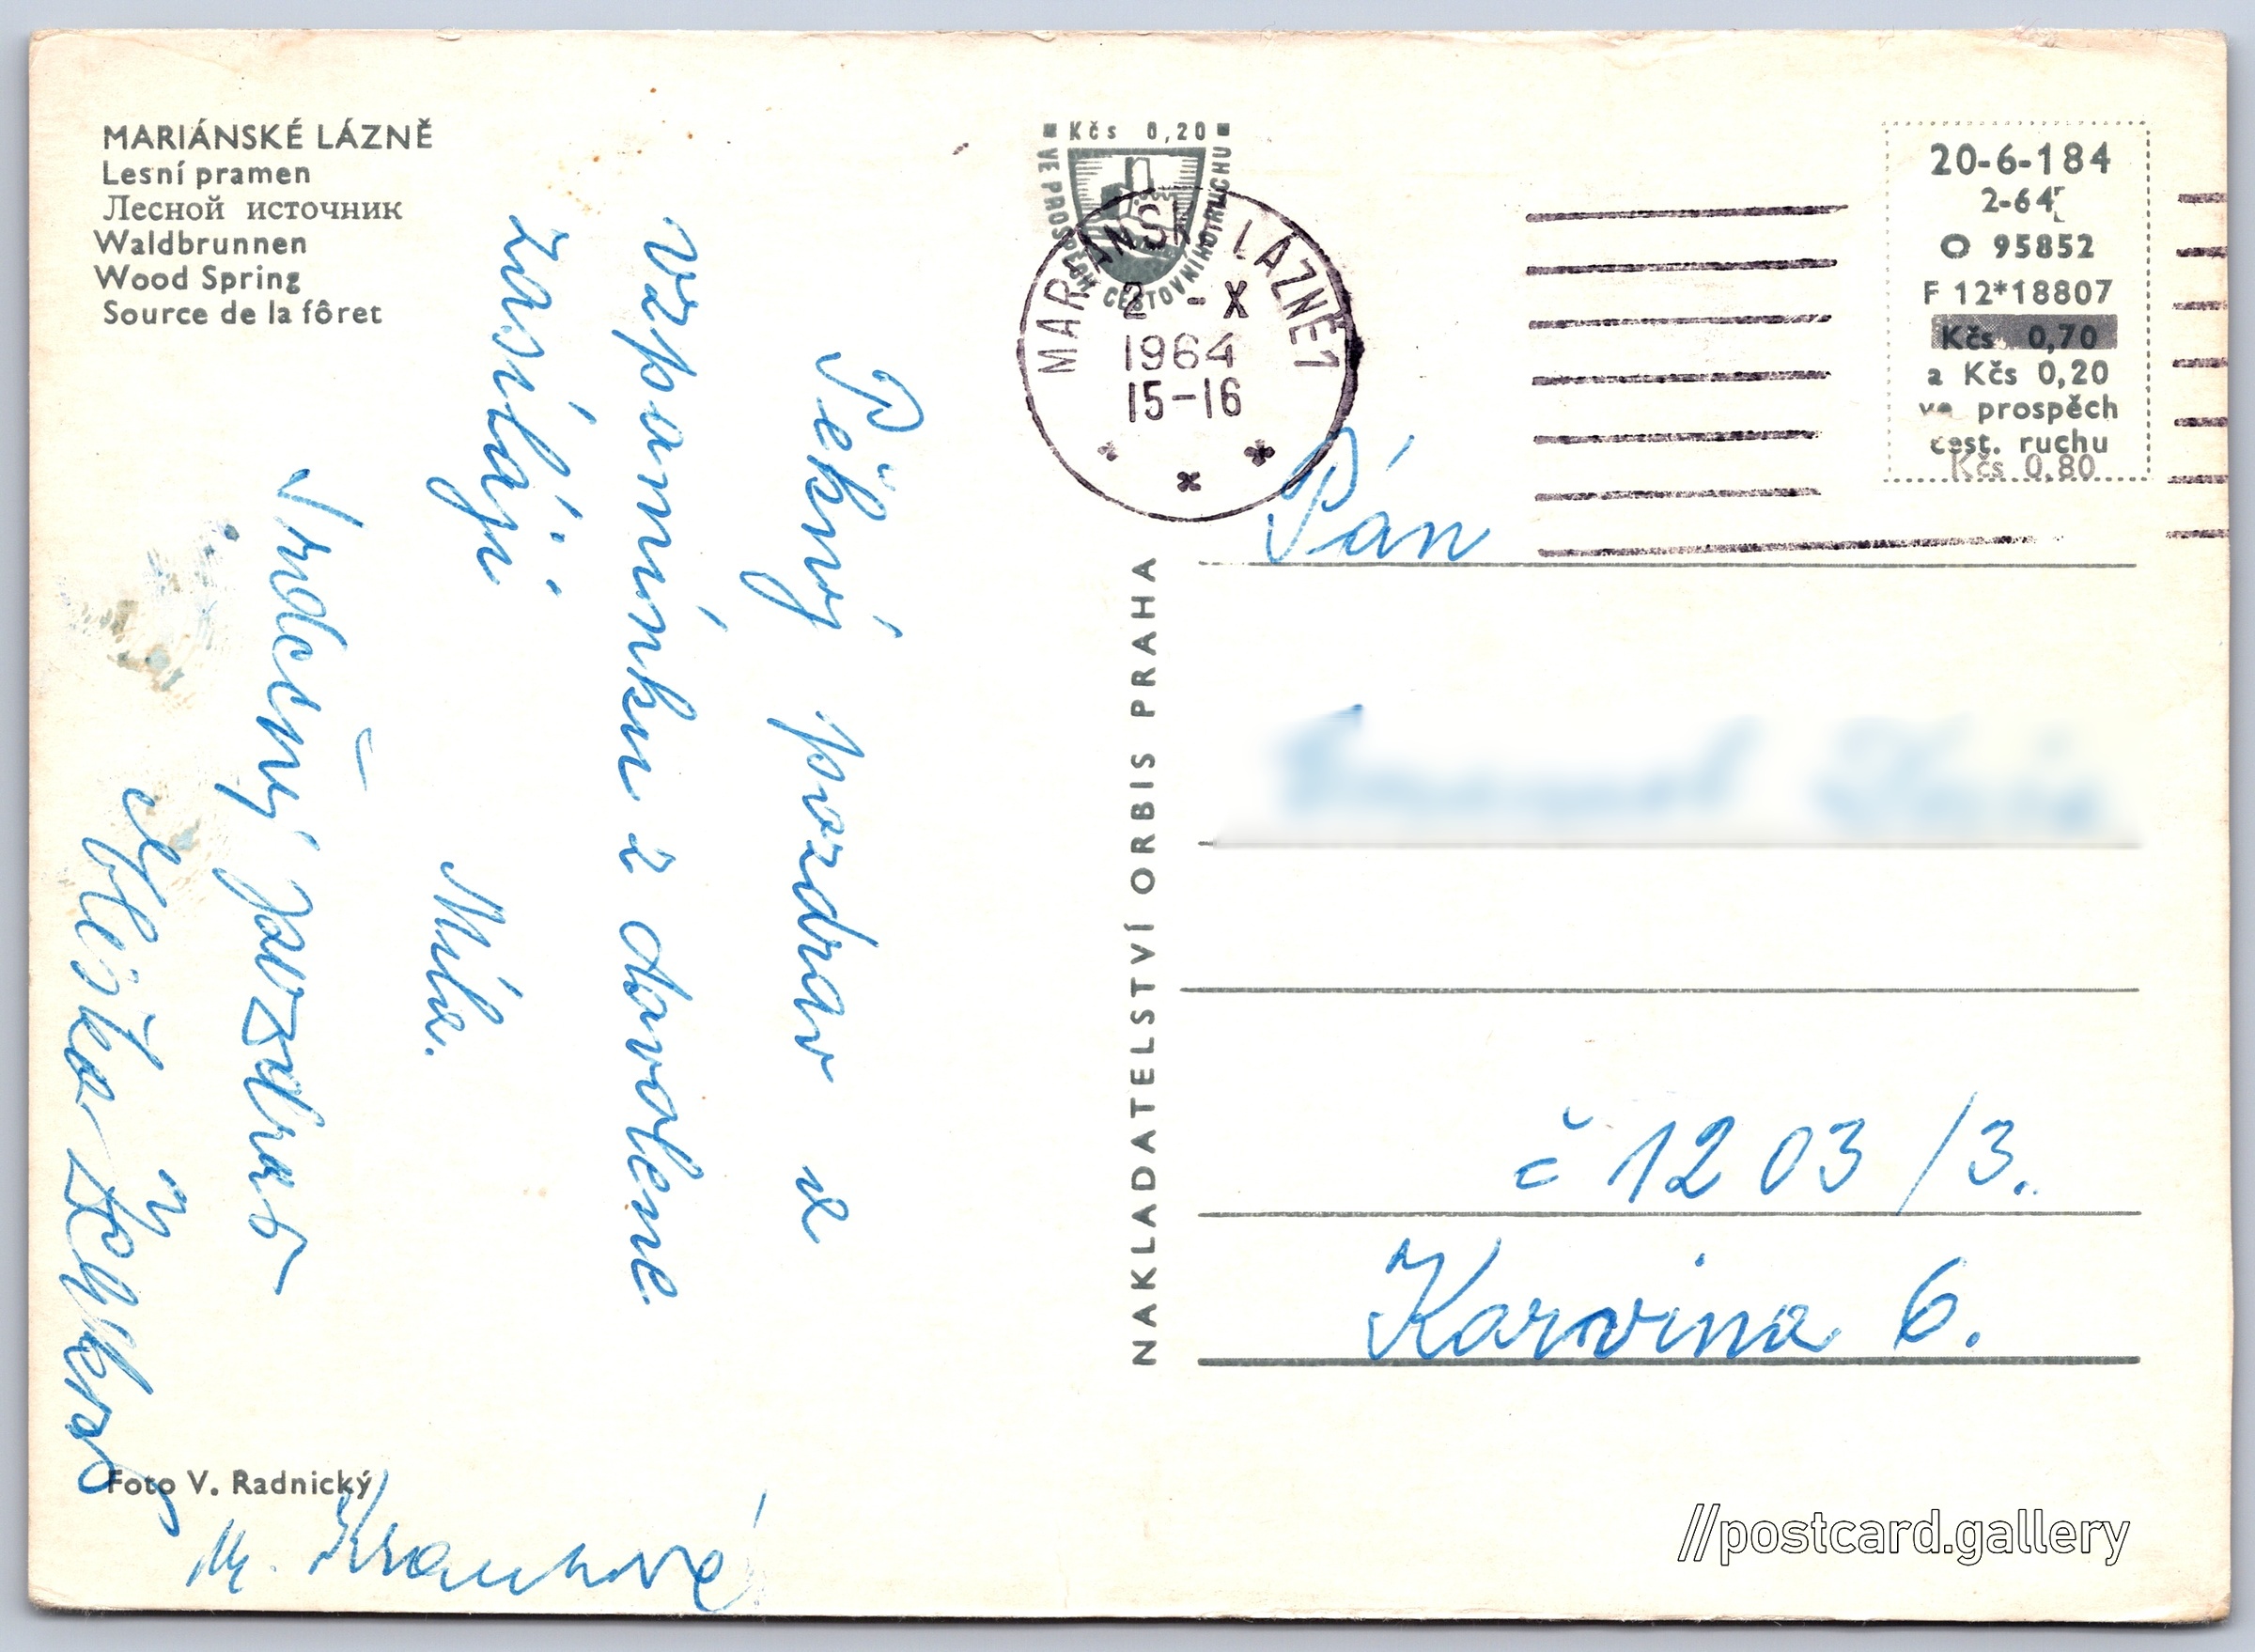 MARIÁNSKÉ LÁZNĚ
Lesní pramen
Лесной источник
Waldbrunnen
Wood Spring
Source de la fôret
Pěkný pozdrav a
vzpomínku z dovolene
zasílají
Míla.
Srdečný pozdrav
Foto V. Radnický
NAKLADATELSTVÍ ORBIS PRAHA
Kčs 0,20
VE PROSPĚCH CESTOVNÍHO RUCHU
MARIÁNSKÉ LÁZNĚ 1
2 -X
1964
15-16
20-6-184
2-64
O 95852
F 12*18807
Kčs 0,70
a Kčs 0,20
ve prospěch
cest. ruchu
Kčs 0,80
Pán
č 1203/3.
Karvina 6.
//postcard.gallery